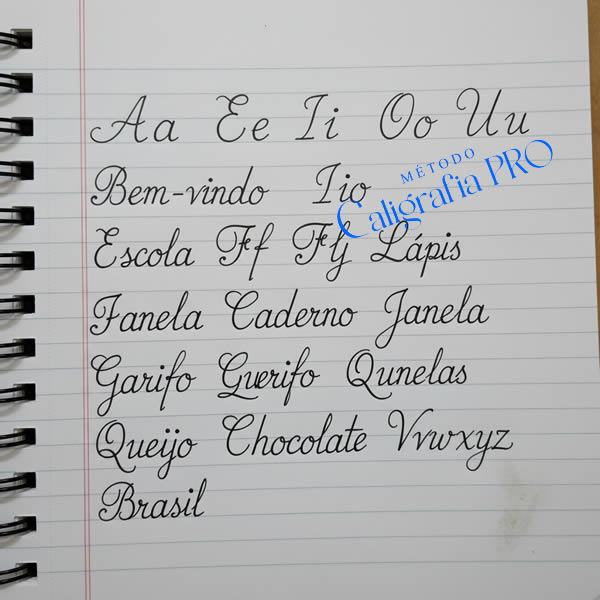 Aa Ee Ii Oo Uu
Bem-vindo Iio
MÉTODO
Caligrafia PRO
Escola Ff Flj Lápis
Fanela Caderno Janela
Garifo Guerifo Qunelas
Queijo Chocolate Vvwxyz
Brasil